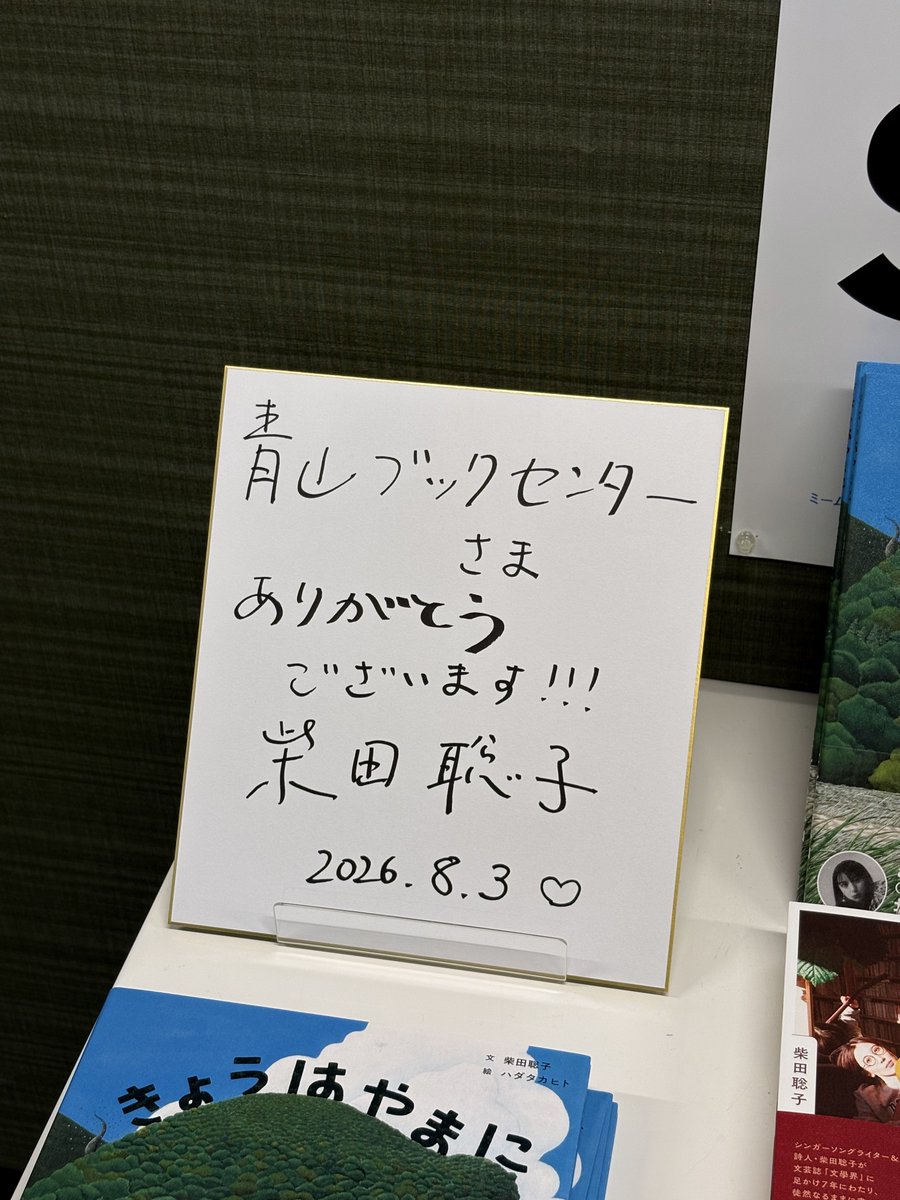 青山ブックセンター
さま
ありがとう
ございます!!!
柴田聡子
2026.8.3♡
文 柴田聡子
絵 ハダタカヒト
きょうはやまに
柴田聡子
シンガーソングライター&
詩人・柴田聡子が
文芸誌「文學界」に
足かけ7年にわたり、
徒然なるま
S